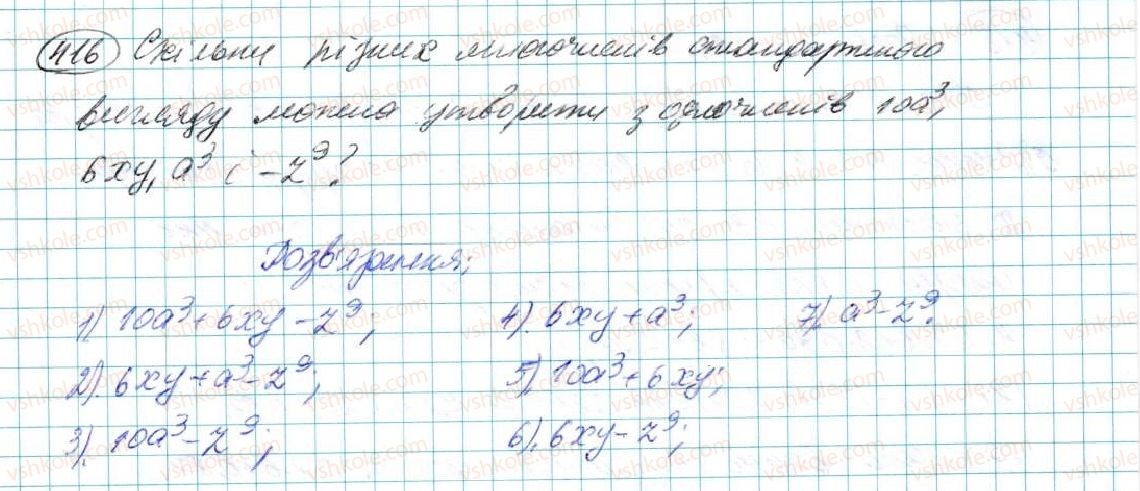 416 Скільки різних многочленів стандартного
вигляду можна утворити з одночленів 10a³,
6xy, a³ і -z⁹?
Розв'язання:
1) 10a³+6xy-z⁹;
2). 6xy+a³-z⁹;
3). 10a³-z⁹;
4). 6xy+a³;
5). 10a³+6xy;
6). 6xy-z⁹;
7). a³-z⁹.
vshkole.com